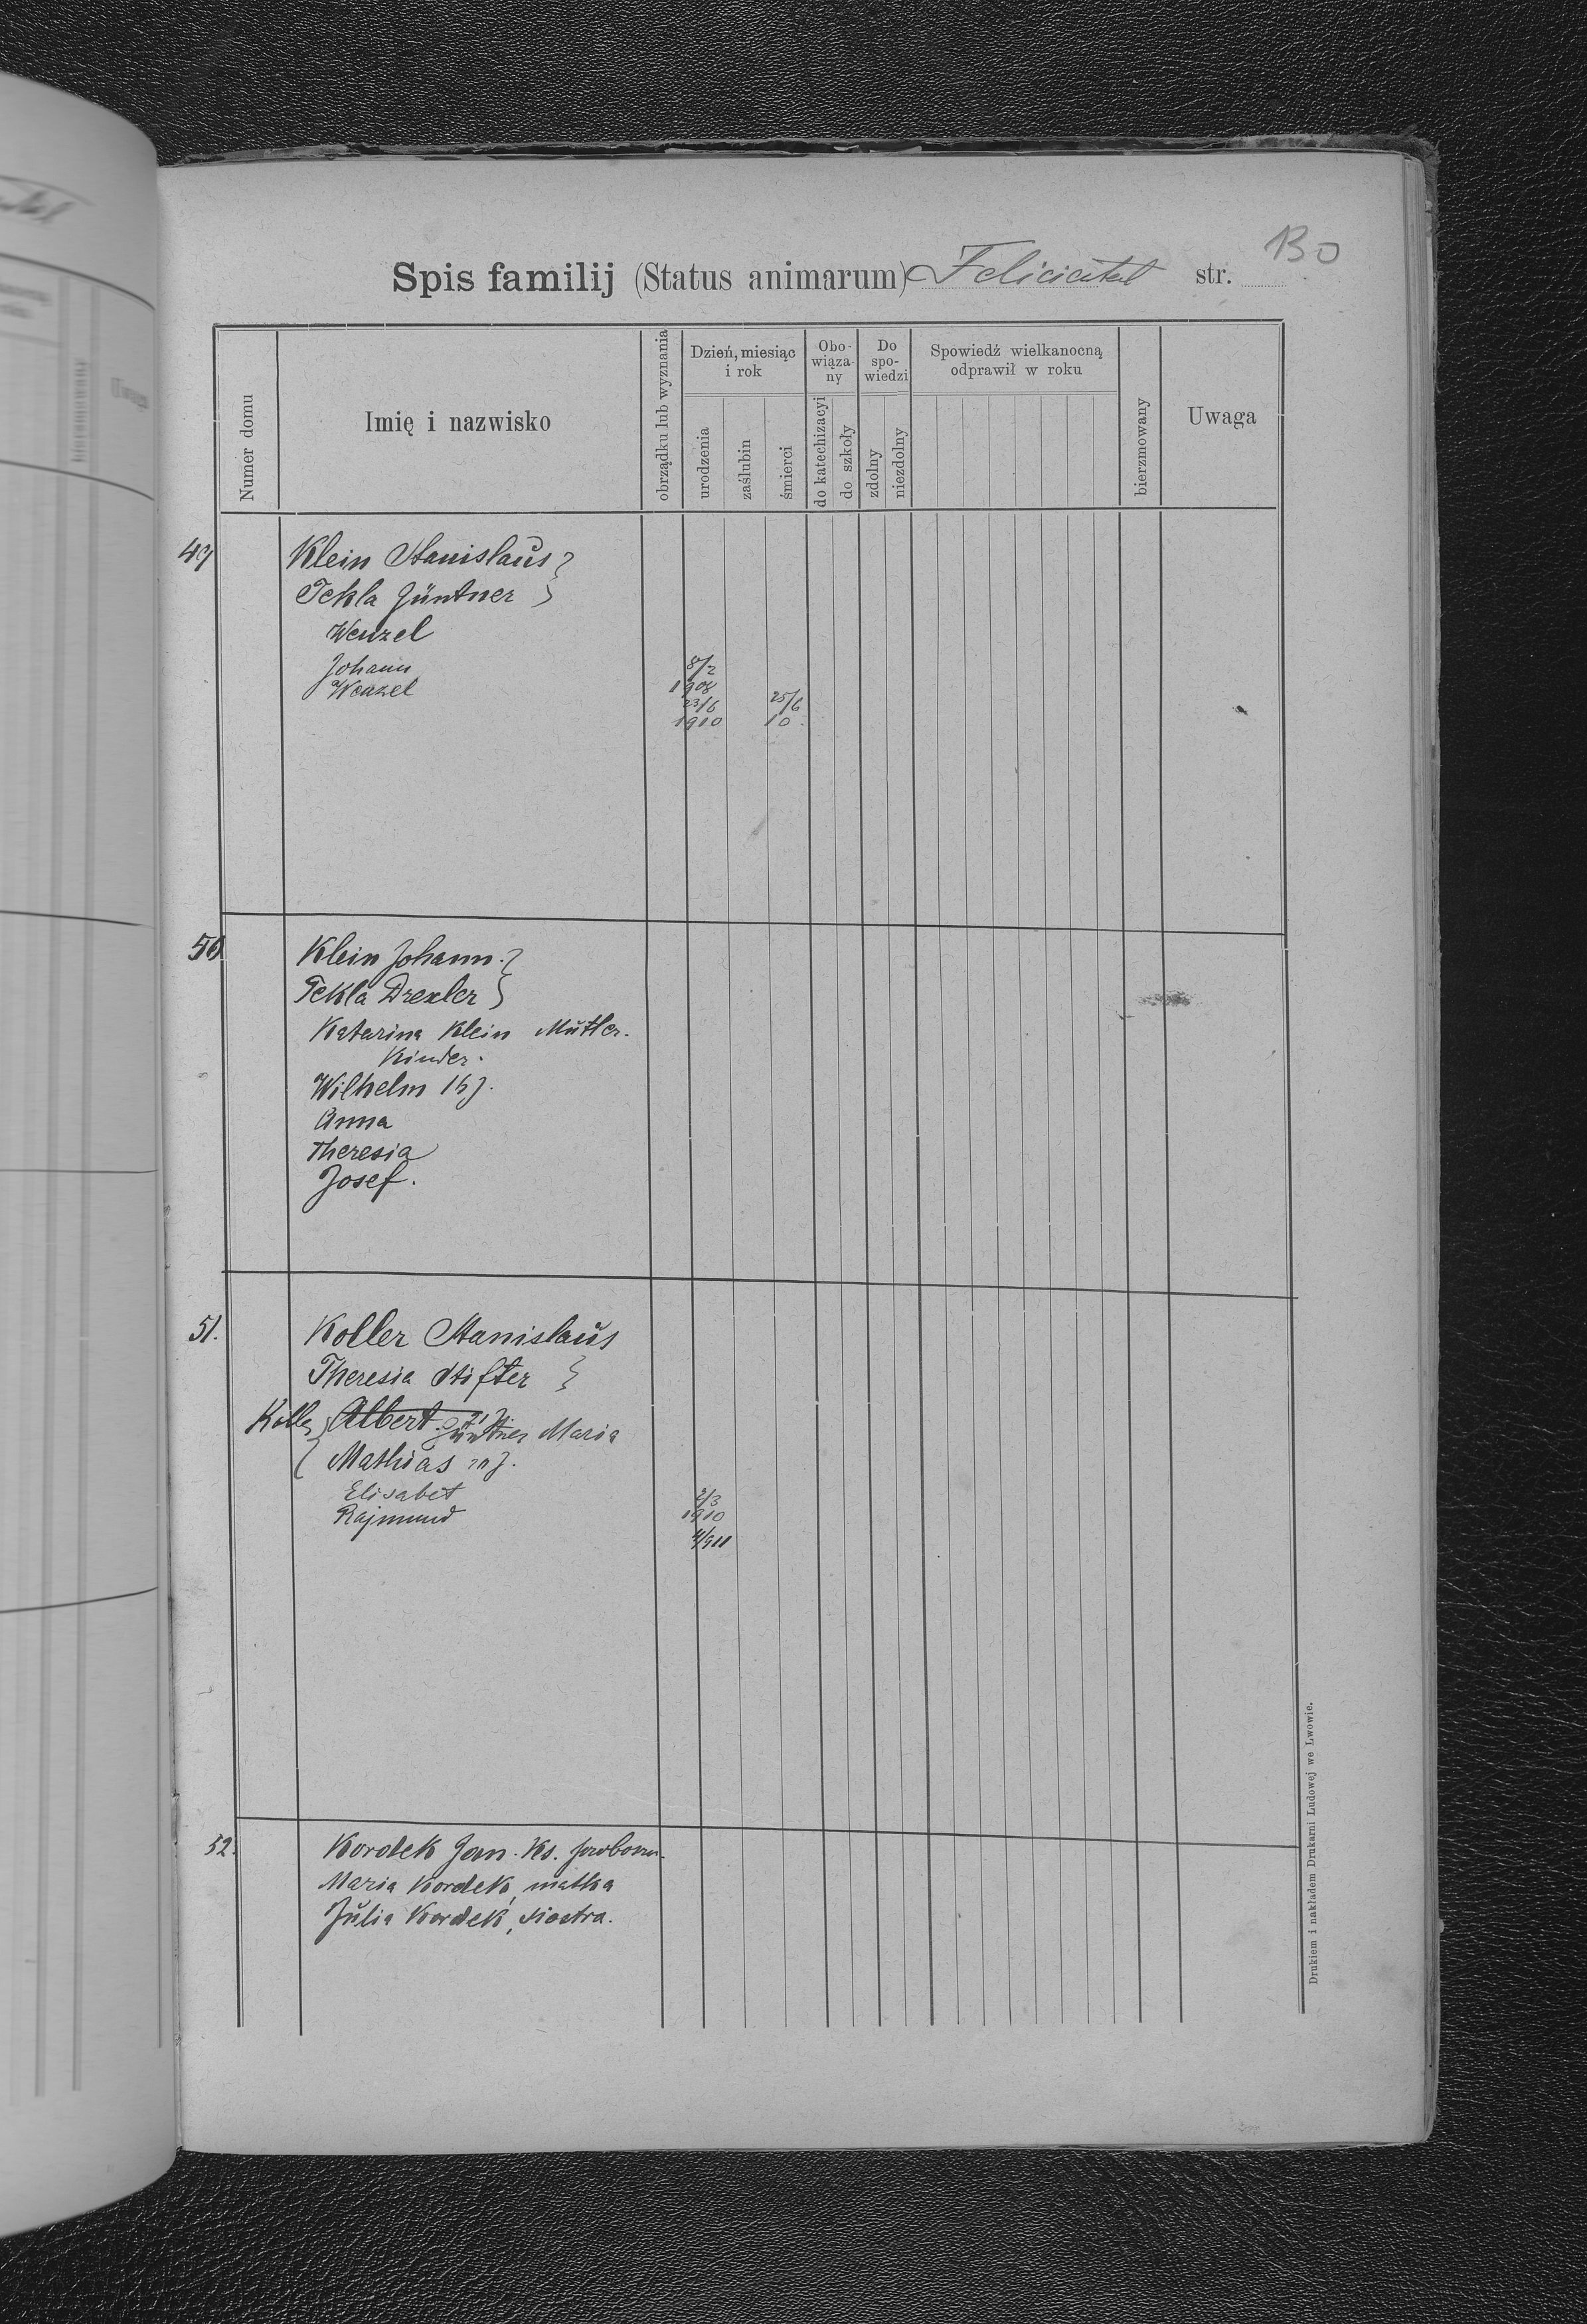 130
Spis familij (Status animarum) Feliciental str.
Numer domu
Imię i nazwisko
obrządku lub wyznania
Dzień, miesiąc i rok
urodzenia
zaślubin
śmierci
Obo-wiąza-ny
do katechizacyi
do szkoły
Do spo-wiedzi
zdolny
niezdolny
Spowiedź wielkanocną odprawił w roku
bierzmowany
Uwaga
49 Klein Stanislaus
Tekla Güntner
Wenzel
Johann 8/2 1908
Wenzel 23/6 1910 25/6 10.
50 Klein Johann.
Tekla Drexler
Katarina Klein Mutter.
Kinder.
Wilhelm 15 J.
Anna
Theresia
Josef.
51. Koller Stanislaus
Theresia Stifter
Koller Albert Güntner Maria
Mathias
Elisabet 2/3 1910
Rajmund 4/911
52. Kordek Jan. Ks.
Maria Kordek, matka
Julia Kordek, siostra.
Drukiem i nakładem Drukarni Ludowej we Lwowie.